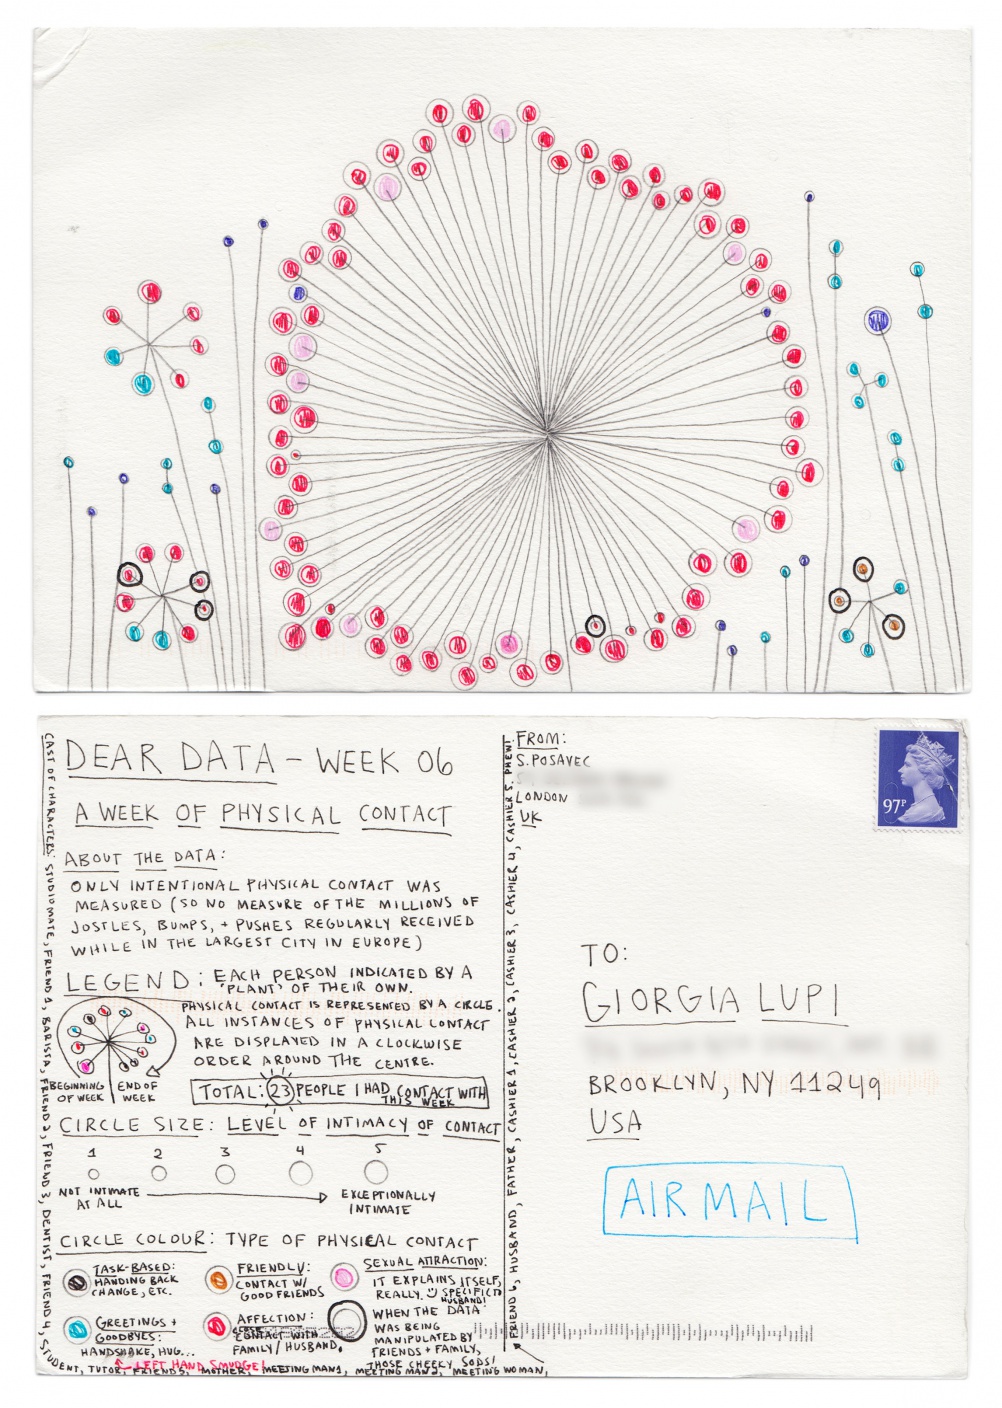 DEAR DATA – WEEK 06
A WEEK OF PHYSICAL CONTACT
ABOUT THE DATA:
ONLY INTENTIONAL PHYSICAL CONTACT WAS
MEASURED (SO NO MEASURE OF THE MILLIONS OF
JOSTLES, BUMPS, + PUSHES REGULARLY RECEIVED
WHILE IN THE LARGEST CITY IN EUROPE)
LEGEND: EACH PERSON INDICATED BY A
'PLANT' OF THEIR OWN.
PHYSICAL CONTACT IS REPRESENTED BY A CIRCLE.
ALL INSTANCES OF PHYSICAL CONTACT
ARE DISPLAYED IN A CLOCKWISE
ORDER AROUND THE CENTRE.
BEGINNING OF WEEK
END OF WEEK
TOTAL: 23 PEOPLE I HAD CONTACT WITH
THIS WEEK
CIRCLE SIZE: LEVEL OF INTIMACY OF CONTACT
1 2 3 4 5
NOT INTIMATE AT ALL
EXCEPTIONALLY INTIMATE
CIRCLE COLOUR: TYPE OF PHYSICAL CONTACT
TASK-BASED:
HANDING BACK
CHANGE, ETC.
FRIENDLY:
CONTACT W/
GOOD FRIENDS
SEXUAL ATTRACTION:
IT EXPLAINS ITSELF,
REALLY. SPECIFIC TO
HUSBAND!
GREETINGS +
GOODBYES:
HANDSHAKE, HUG...
AFFECTION:
CLOSE
CONTACT WITH
FAMILY/HUSBAND.
WHEN THE DATA
WAS BEING
MANIPULATED BY
FRIENDS + FAMILY,
THOSE CHEEKY SODS!
LEFT HAND SMUDGE!
CAST OF CHARACTERS: STUDIO MATE, FRIEND 1, BARISTA, FRIEND 2, FRIEND 3, DENTIST, FRIEND 4, STUDENT, TUTOR, FRIEND 5, MOTHER, MEETING MAN 1, MEETING MAN 2, MEETING WOMAN,
FRIEND 6, HUSBAND, FATHER, CASHIER 1, CASHIER 2, CASHIER 3, CASHIER 4, CASHIER 5, PHEW!
FROM:
S. POSAVEC
LONDON
UK
97P
TO:
GIORGIA LUPI
BROOKLYN, NY 11249
USA
AIR MAIL